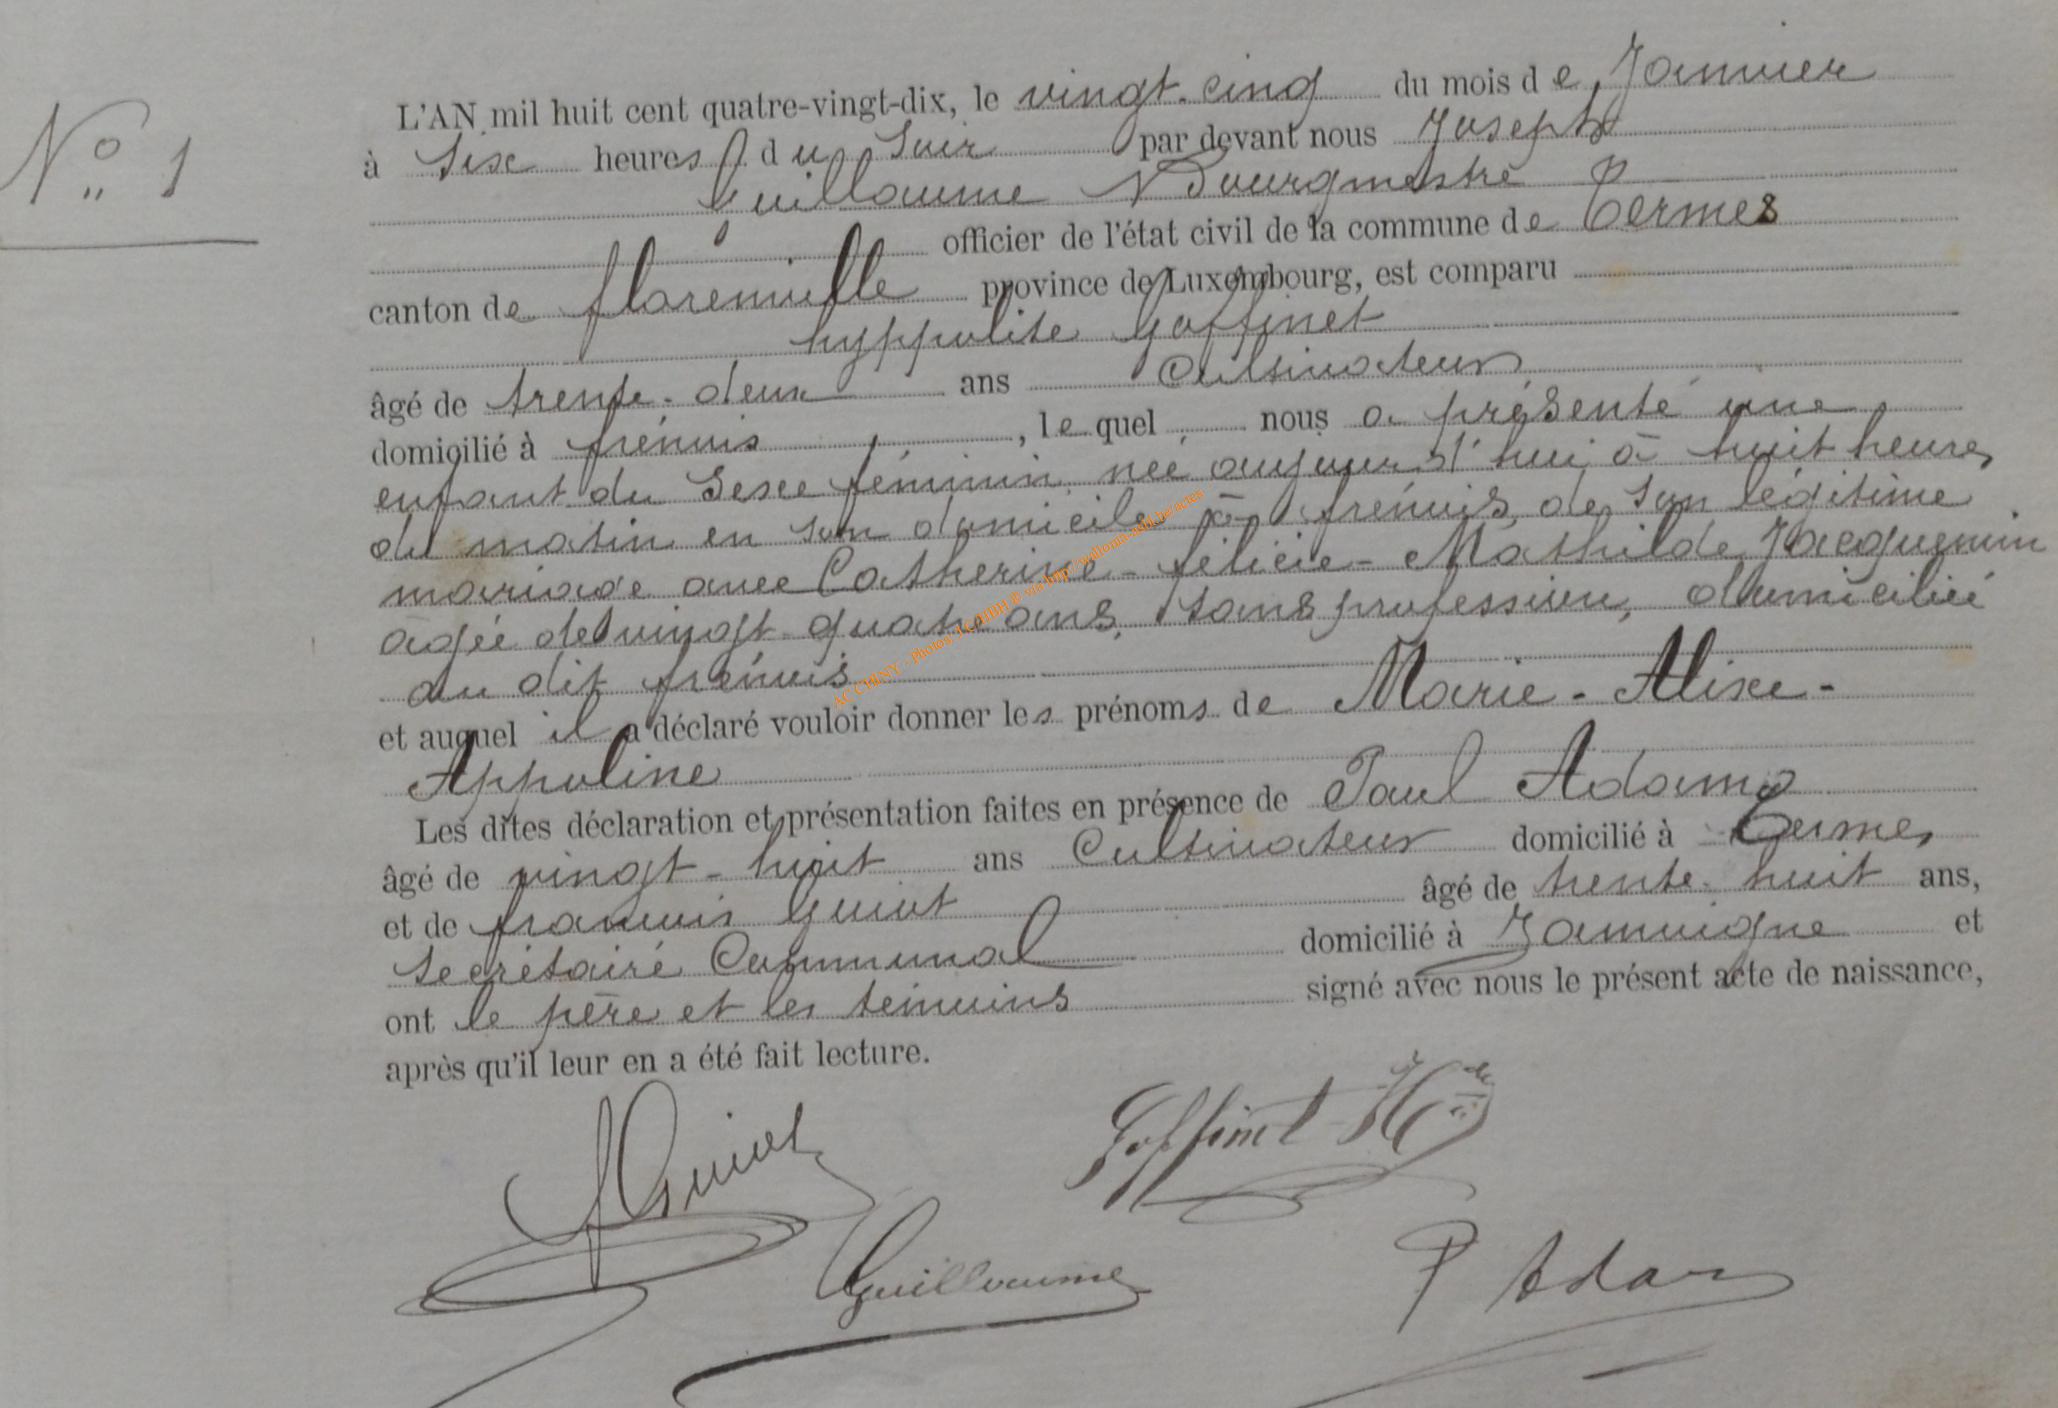 N° 1
L'AN mil huit cent quatre-vingt-dix, le vingt-cinq du mois de Janvier
à Six heures du Soir par devant nous Joseph
Guillaume Bourgmestre
officier de l'état civil de la commune de Termes
canton de florenville province de Luxembourg, est comparu
hyppolite Goffinet
âgé de trente-deux ans Cultivateur
domicilié à frénois, lequel nous a présenté une
enfant du Sexe féminin née aujourd'hui à huit heures
du matin en son domicile à frénois, de son légitime
mariage avec Catherine-félicie-Mathilde Jacquemin
âgée de vingt-quatre ans, sans profession, domiciliée
au dit frénois
et auquel il a déclaré vouloir donner les prénoms de Marie-Alixe-
Appoline
Les dites déclaration et présentation faites en présence de Paul Adam
âgé de vingt-huit ans Cultivateur domicilié à Termes
et de francois Guiot âgé de trente-huit ans,
Secrétaire Communal domicilié à Jamoigne et
ont le père et les témoins signé avec nous le présent acte de naissance,
après qu'il leur en a été fait lecture.
Goffinet
F Guiot
Guillaume
P Adam
AC CHINY - Photos: J.C.MBH © via http://wallonia-asbl.be/actes